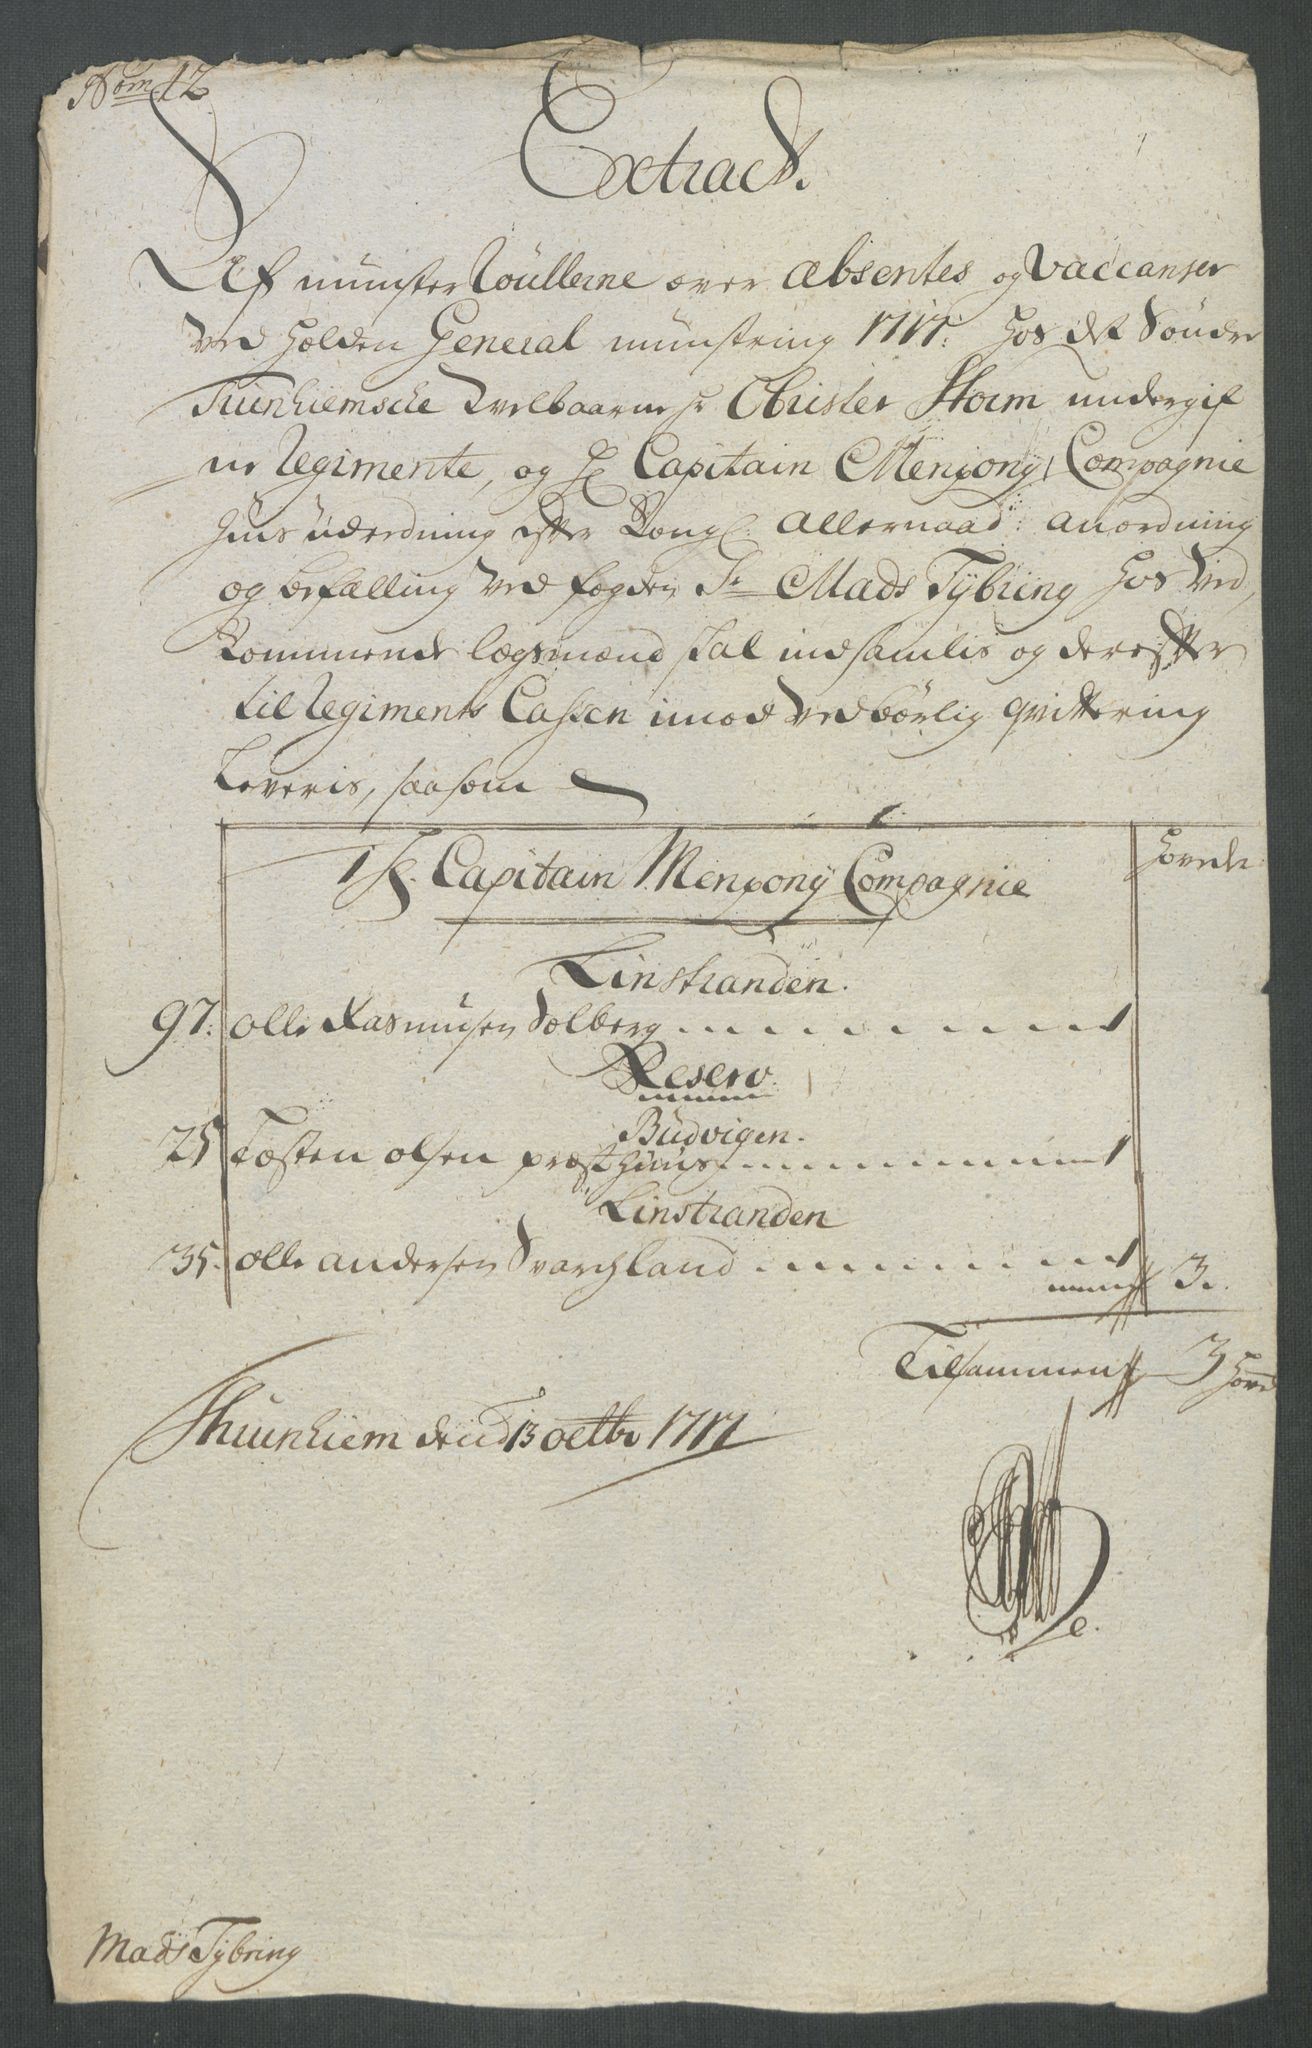 Nom 12
Extract.
Af munster Roullerne over Absentes og Vaccanser
ved holden General munstring 1717: hos det Söndre
Truenhiemsche Welbaarne Hr Obrister Storm undergif
ne Regimente, og Hr Capitain Menzonÿ Compagnie
efter Kongl. Allernaad: anordning
og befalling ved fogden Sr Mads Tÿbring hos ved,
kommende lægsmænd skal indsamlis og derefter
til Regiments Cassen imod vedbörlig qvittering
Leveris, saasom
Hr. Capitain Menzonÿ Compagnie
Hovede
Linstranden.
97. olle Rasmusen Solberg 1
Reserv.
Büdvigen.
25 Tosten olsen præsthuus 1
Linstranden
35. olle andersen Svarthland 1
3.
Tilsammen 3 Hove
Thruenhiem dend 13 octbr 1717
Mads Tÿbring